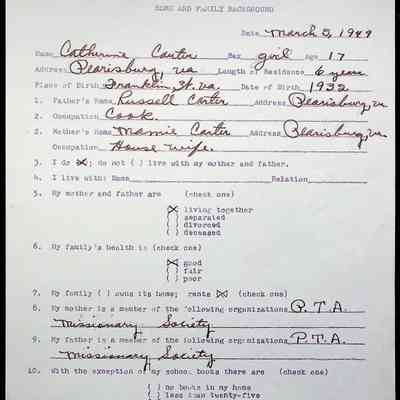 HOME AND FAMILY BACKGROUND
Date March 2, 1949
Name Catherine Carter Sex girl Age 17
Address Pearisburg, Va Length of Residence 6 years
Place of Birth Franklin, W. va. Date of Birth 1932
1. Father's Name Russell Carter Address Pearisburg, va.
2. Occupation Cook.
2. Mother's Name Mamie Carter Address Pearisburg, va.
Occupation House wife.
3. I do (X); do not ( ) live with my mother and father.
4. I live with: Name Relation
5. My mother and father are (check one)
(X) living together
( ) separated
( ) divorced
( ) deceased
6. My family's health is (check one)
(X) good
( ) fair
( ) poor
7. My family ( ) owns its home; rents (X) (check one)
8. My mother is a member of the following organizations P.T.A.
Missionary Society
9. My father is a member of the following organizations P.T.A.
Missionary Society
10. With the exception of my school books there are (check one)
( ) no books in my home
( ) less than twenty-five